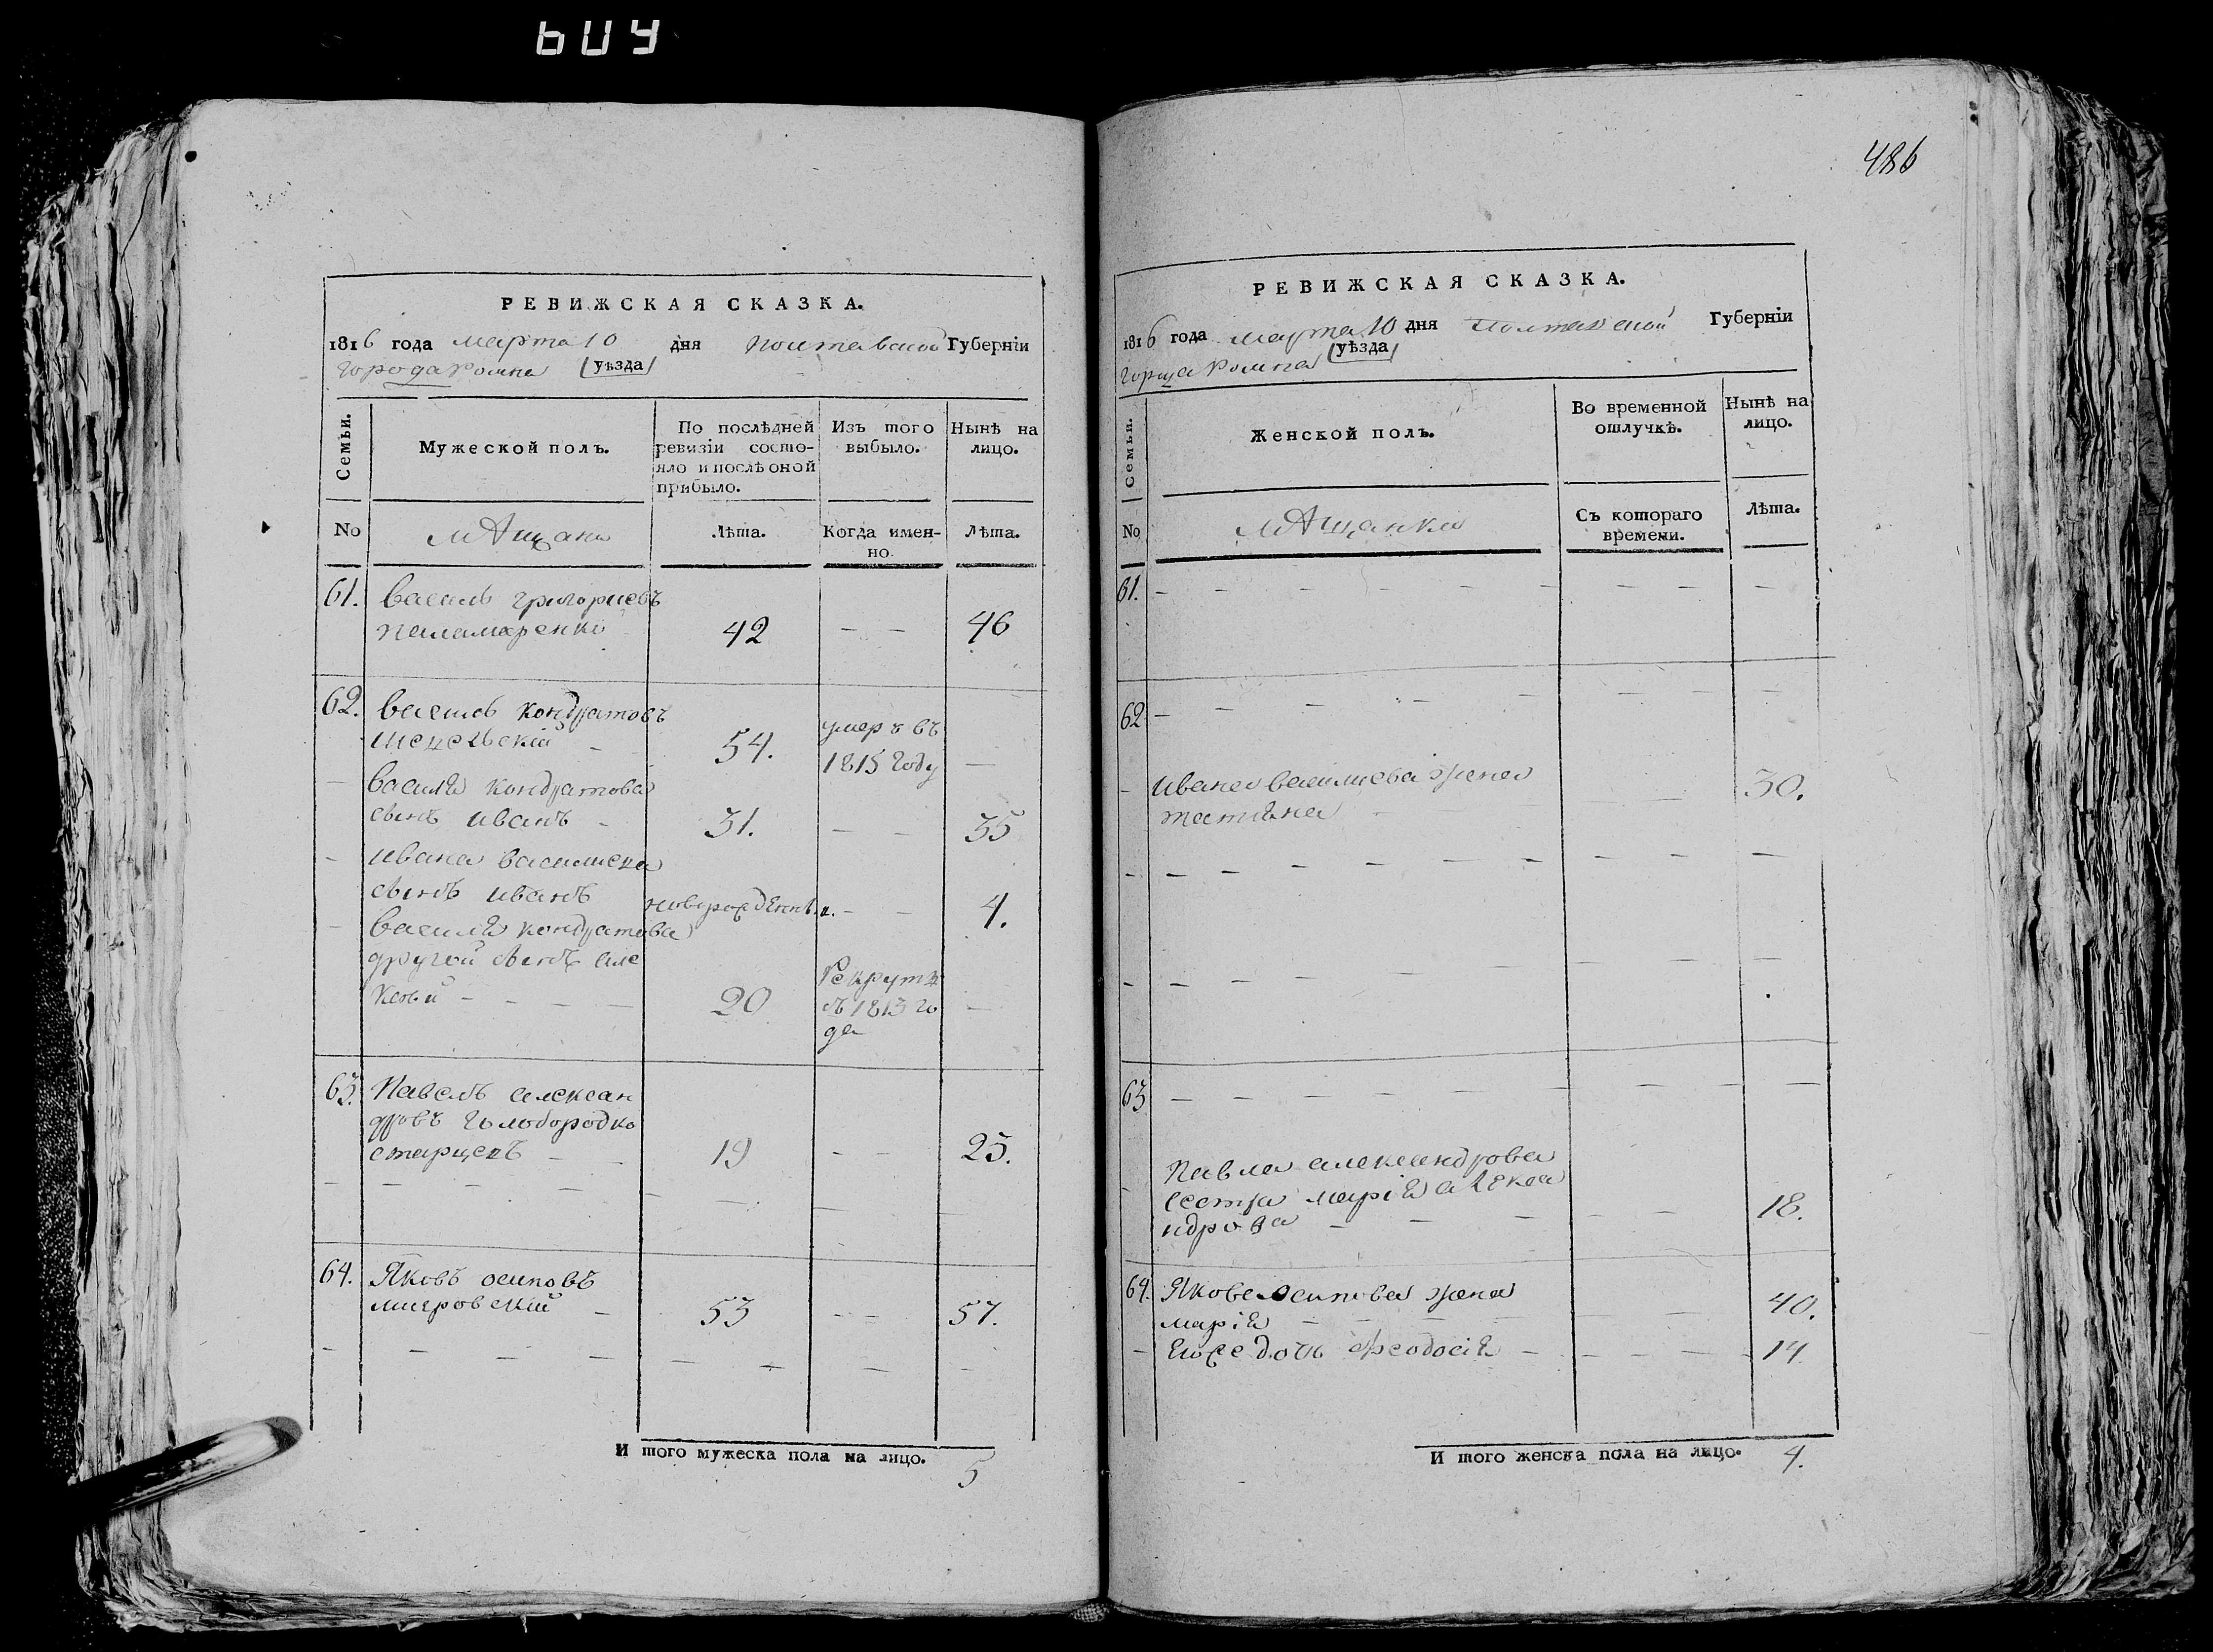 604
РЕВИЖСКАЯ СКАЗКА.
1816 года марта 10 дня Полтавской Губерніи
Города Ромна (уѣзда)
Семьи.
Мужеской полъ.
По послѣдней ревизіи состо-
яло и послѣ оной
прибыло.
Изъ того
выбыло.
Нынѣ на
лицо.
No
мѣщане
Лѣта.
Когда имен-
но.
Лѣта.
61. василь григориевъ
паламаренко 42 — — 46
62. василь кондратовъ
54. умеръ въ
1815 году —
— василя кондратова
сынъ иванъ — 31. — — 35
— ивана василиева
сынъ иванъ новорожденны. — — 4.
— василя кондратова
другой сынъ але
ксей — — — — 20 Рекрутъ
съ 1813 го
да —
63. Павелъ алексан
дровъ голобородко
старцеъ — — 19 — — 23.
— — — — — — — —
64. Яковъ осиповъ
мировский — 53 — — 57.
— — — — — — — —
И того мужеска пола на лицо. 5
486
РЕВИЖСКАЯ СКАЗКА.
1816 года марта 10 дня Полтавской Губерніи
города Ромна (уѣзда)
Семьи.
Женской полъ.
Во временной
отлучкѣ.
Нынѣ на
лицо.
No
мѣщанки
Съ котораго
времени.
Лѣта.
61. — — — — — — — — —
62 — — — — — — — —
— ивана василиева жена
татияна — — — 30.
— — — — — — — — —
— — — — — — —
63 — — — — — — — —
— Павла александрова
сестра марія алекса
ндрова — — — — — 18.
64. Якова осипова жена
марія — — — — — 40.
— Ихже дочь феодосія — — — — 14
И того женска пола на лицо. 4.